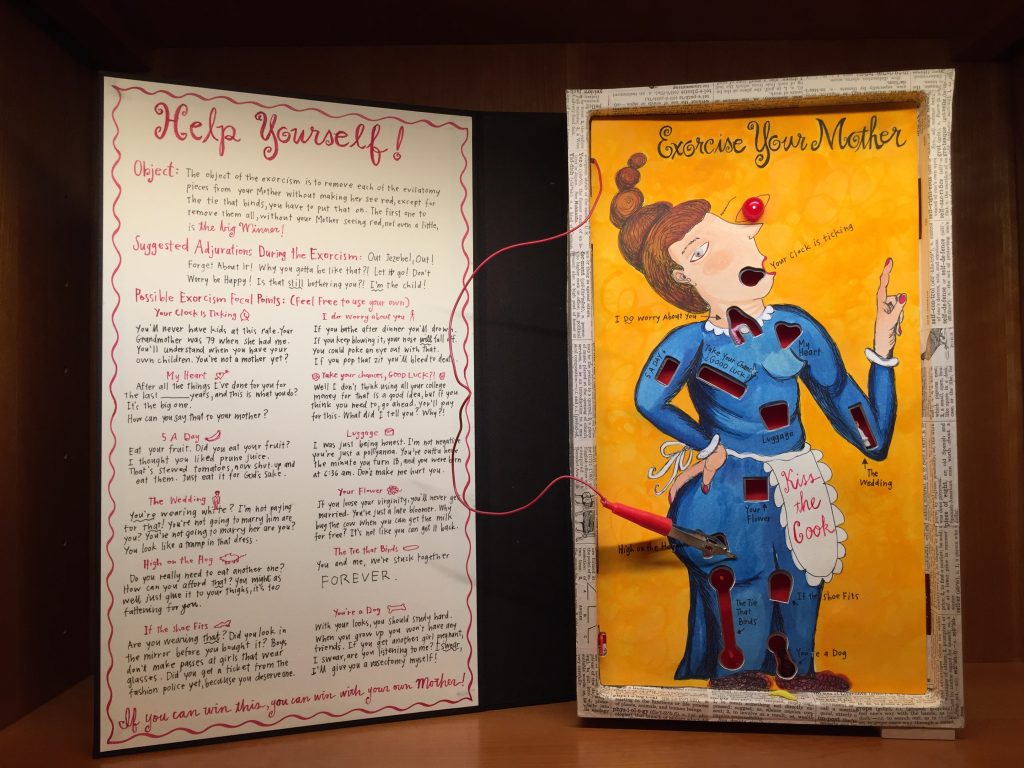 Help Yourself!
Object: The object of the exorcism is to remove each of the evilatomy
pieces from your Mother without making her see red, except for
The tie that binds, you have to put that on. The first one to
remove them all, without your Mother seeing red, not even a little,
is the big Winner!
Suggested Adjurations During the Exorcism: Out Jezebel, Out!
Forget About it! Why you gotta be like that?! Let it go! Don't
Worry be Happy! Is that still bothering you?! I'm the child!
Possible Exorcism Focal Points: (feel free to use your own)
Your Clock is Ticking
You'll never have kids at this rate. Your
Grandmother was 79 when she had me.
You'll understand when you have your
own children. You're not a mother yet?
My Heart
After all the things I've done for you for
the last ____ years, and this is what you do?
It's the big one.
How can you say that to your mother?
5 A Day
Eat your fruit. Did you eat your fruit?
I thought you liked prune juice.
That's stewed tomatoes, now shut up and
eat them. Just eat it for God's sake.
The Wedding
You're wearing white? I'm not paying
for that! You're not going to marry him are
you? You're not going to marry her are you?
You look like a tramp in that dress.
High on the Hog
Do you really need to eat another one?
How can you afford that? You might as
well just glue it to your thighs, it's too
fattening for you.
If the Shoe Fits
Are you wearing that? Did you look in
the mirror before you bought it? Boys
don't make passes at girls that wear
glasses. Did you get a ticket from the
fashion police yet, because you deserve one.
I do worry about you
If you bathe after dinner you'll drown.
If you keep blowing it, your nose will fall off.
You could poke an eye out with that.
If you pop that zit you'll bleed to death.
Take your chances, GOOD LUCK?!
Well I don't think using all your college
money for that is a good idea, but if you
think you need to, go ahead. You'll pay
for this. What did I tell you? Why?!
Luggage
I was just being honest. I'm not negative
you're just a pollyanna. You're outta here
the minute you turn 18, and you were born
at 6:36 am. Don't make me hurt you.
Your Flower
If you loose your virginity, you'll never get
married. You're just a late bloomer. Why
buy the cow when you can get the milk
for free? It's not like you can get it back.
The Tie that Binds
You and me, we're stuck together
FOREVER.
You're a Dog
With your looks, you should study hard.
When you grow up you won't have any
friends. If you get another girl pregnant,
I swear, are you listening to me? I swear,
I'll give you a vasectomy myself!
If you can win this, you can win with your own Mother!
Exorcise Your Mother
Your Clock is ticking
I Do Worry About You
My Heart
5 A Day
Take Your Chances
GOOD LUCK
Luggage
The Wedding
Your Flower
Kiss
the
Cook
High on the Hog
If the Shoe Fits
The Tie
That
Binds
You're a Dog